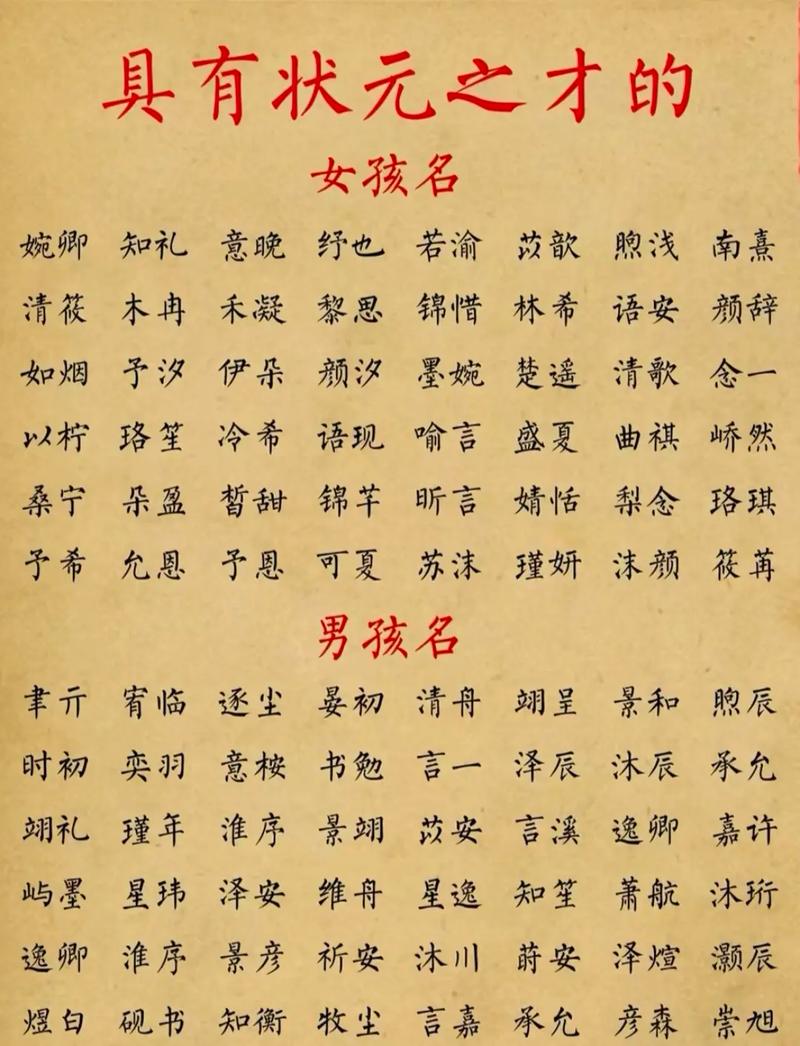 具有状元之才的
女孩名
婉卿 知礼 意晚 纾也 若渝 苡歆 煦浅 南熹
清筱 木冉 禾凝 黎思 锦惜 林希 语安 颜辞
如烟 予汐 伊朵 颜汐 墨婉 楚遥 清歌 念一
以柠 珞笙 冷希 语现 喻言 盛夏 曲祺 峤然
桑宁 朵盈 皙甜 锦芊 昕言 婧恬 梨念 珞琪
予希 允恩 予恩 可夏 苏沫 瑾妍 沫颜 筱苒
男孩名
聿亓 宥临 逐尘 晏初 清舟 翊呈 景和 煦辰
时初 奕羽 意桉 书勉 言一 泽辰 沐辰 承允
翊礼 瑾年 淮序 景翊 苡安 言溪 逸卿 嘉许
屿墨 星玮 泽安 维舟 星逸 知笙 萧航 沐珩
逸卿 淮序 景彦 祈安 沐川 莳安 泽煊 灏辰
煜白 砚书 知衡 牧尘 言嘉 承允 彦森 崇旭